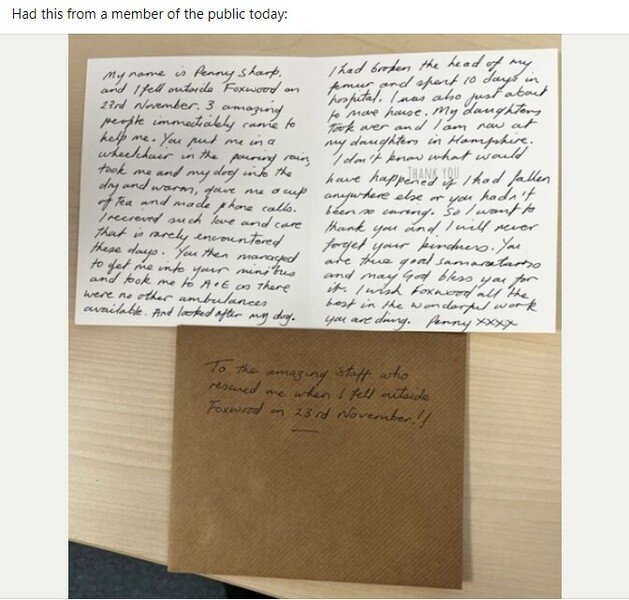 Had this from a member of the public today:
My name is Penny Sharp,
and I fell outside Foxwood on
23rd November. 3 amazing
people immediately came to
help me. You put me in a
wheelchair in the pouring rain,
took me and my dog into the
dry and warm, gave me a cup
of tea and made phone calls.
I recieved such love and care
that is rarely encountered
these days. You then managed
to get me into your mini bus
and took me to A+E as there
were no other ambulances
available. And looked after my dog.
I had broken the head of my
femur and spent 10 days in
hospital. I was also just about
to move house. My daughters
took over and I am now at
my daughters in Hampshire.
I don't know what would
THANK YOU
have happened if I had fallen
anywhere else or you hadn't
been so caring. So I want to
thank you and I will never
forget your kindness. You
are true good samaratans
and may God bless you for
it. I wish Foxwood all the
best in the wonderful work
you are doing. Penny xxxx
To the amazing staff who
rescued me when I fell outside
Foxwood on 23rd November!!